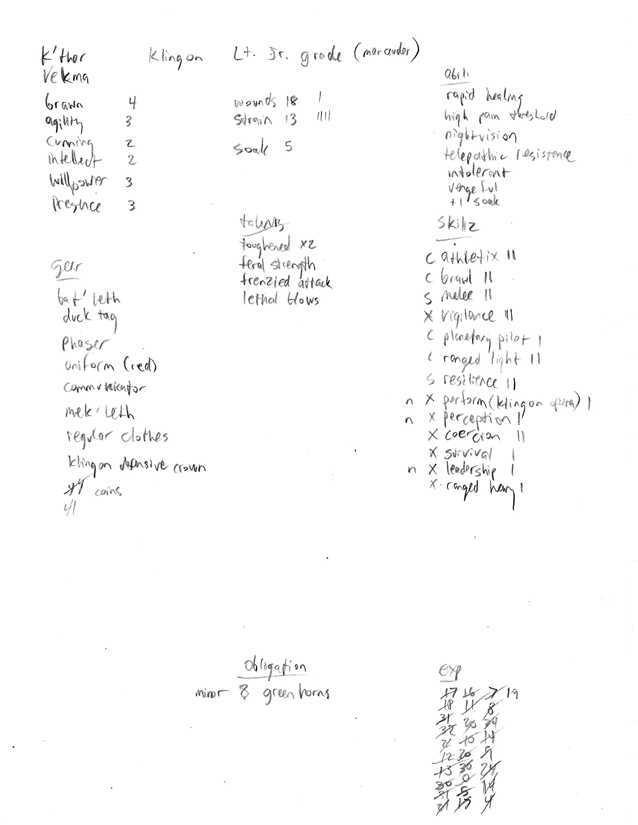 K'thor Klingon Lt. Jr. grade (marauder)
Vekma
brawn 4
agility 3
cunning 2
intellect 2
willpower 3
Presence 3
wounds 18 |
strain 13 ||||
soak 5
abili
rapid healing
high pain threshold
nightvision
telepathic resistence
intolerant
vengeful
+1 soak
talents
toughened x2
feral strength
frenzied attack
lethal blows
Skillz
c athletix ||
c brawl ||
s melee ||
x vigilance ||
c planetary pilot |
c ranged light ||
s resilience ||
n x perform (klingon opera) |
n x perception |
x coercion ||
x survival |
n x leadership |
x ranged heavy |
gear
bat'leth
duck tag
phaser
uniform (red)
communicator
mek'leth
regular clothes
klingon defensive crown
coins
41
Obligation
minor 8 greenhorns
exp
17 16 7 19
18 11 8